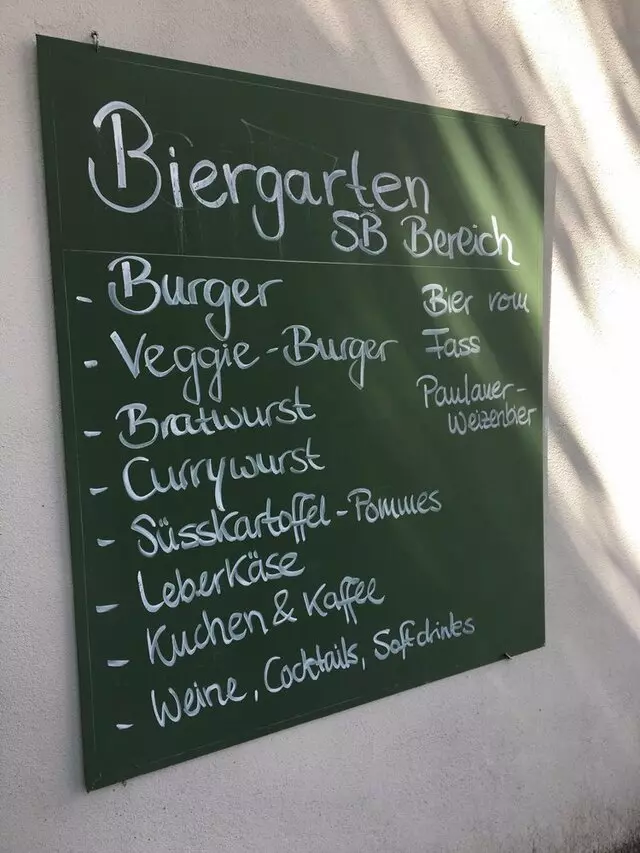 Biergarten
SB Bereich
- Burger
- Veggie-Burger
- Bratwurst
- Currywurst
- Süsskartoffel-Pommes
- Leberkäse
- Kuchen & Kaffee
- Weine, Cocktails, Softdrinks
Bier vom
Fass
Paulaner-
Weizenbier